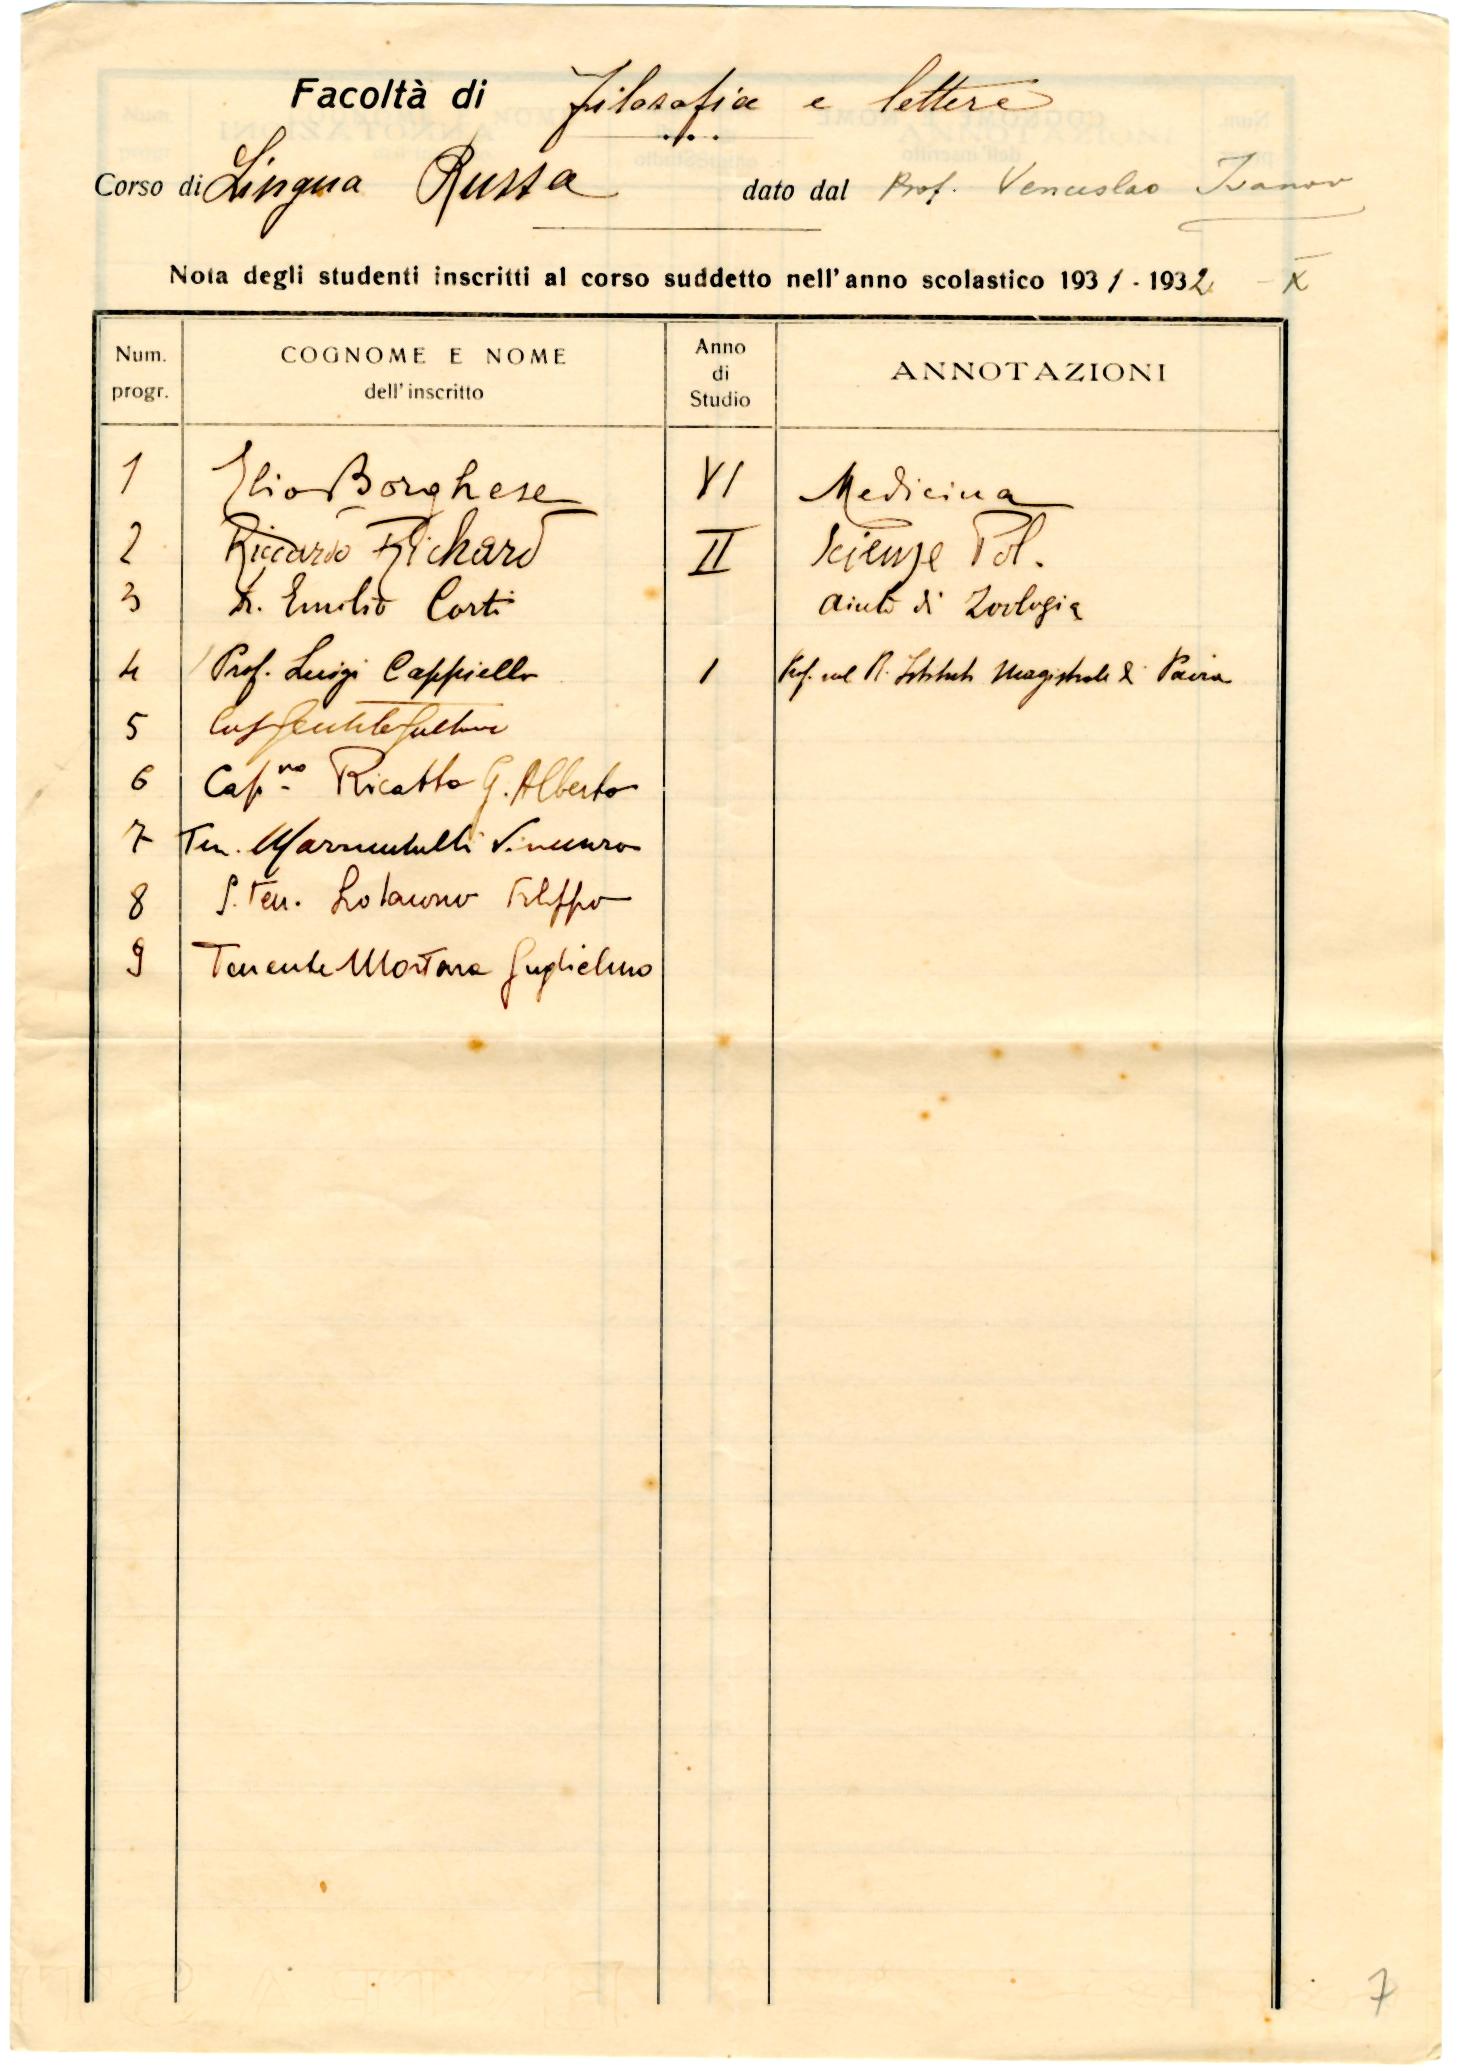 Facoltà di Filosofia e lettere
Corso di Lingua Russa dato dal Prof. Venceslao Ivanov
Nota degli studenti inscritti al corso suddetto nell'anno scolastico 1931-1932 - X
Num. progr. COGNOME E NOME dell'inscritto Anno di Studio ANNOTAZIONI
1 Elio Borghese VI Medicina
2 Riccardo Richard II Scienze Pol.
3 Dr. Emilio Corti aiuto di Zoologia
4 Prof. Luigi Cappiello 1 Prof. nel R. Istituto Magistrale di Pavia
5 Gentile
6 Cap.no Ricatto G. Alberto
7 Ten. Vincenzo
8 S. Ten. Lo Iacono Filippo
9 Tenente Mortara Guglielmo
7